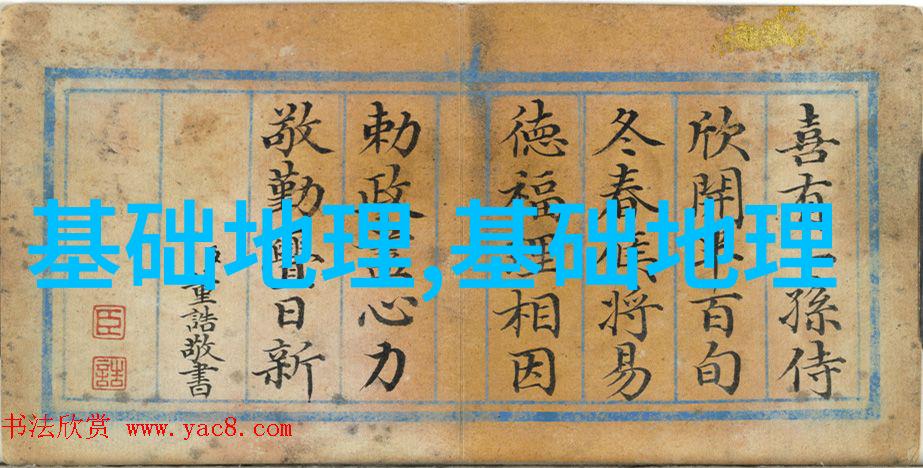 喜有孫侍
欣開半百旬
冬春候将易
徳福理相因
勅政心力
敬勤日新
董誥敬書
臣
誥
基础地理,基础地理
书法欣赏 www.yac8.com